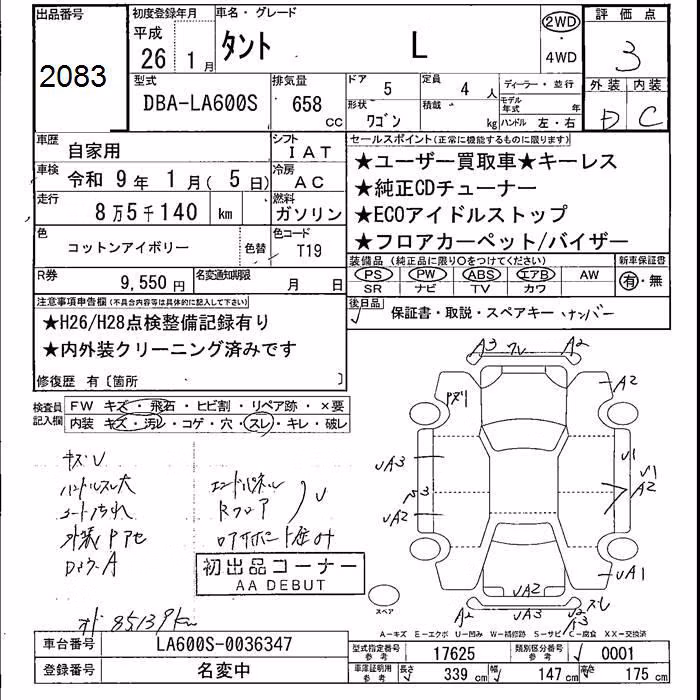 出品番号
2083
初度登録年月
平成
26 1月
車名・グレード
タント L
2WD
・
4WD
評価点
3
外装 内装
D C
型式
DBA-LA600S
排気量
658 CC
ドア
5
定員
4 人
形状
ワゴン
積載
kg
ディーラー・並行
モデル年式 年
ハンドル 左・右
車歴
自家用
シフト
IAT
車検
令和 9年 1月( 5日)
冷房
AC
走行
8万5千140 km
燃料
ガソリン
色
コットンアイボリー
色替
色コード
T19
R券
9,550円
名変通知期限
月 日
セールスポイント(正常に機能するものに限ります)
★ユーザー買取車★キーレス
★純正CDチューナー
★ECOアイドルストップ
★フロアカーペット/バイザー
装備品 (純正品に限り○をつけてください)
PS PW ABS エアB AW
SR ナビ TV カワ
新車保証書
有・無
後日品
保証書・取説・スペアキー ナンバー
注意事項申告欄(不具合内容等は具体的に記入して下さい)
★H26/H28点検整備記録有り
★内外装クリーニング済みです
修復歴 有〔箇所 〕
検査員記入欄
FW キズ・飛石・ヒビ割・リペア跡・×要
内装 キズ・汚レ・コゲ・穴・スレ・キレ・破レ
キズU
ハンドルスレ大
シート汚れ
エンドパネル
Rフロア
U
初出品コーナー
AA DEBUT
A3
A2
A2
UA3
UA2
U1
U1
A2
UA1
UA2
UA3
A2
スレ
A3
スペア
A-キズ E-エクボ U-凹み W-補修跡 S-サビ C-腐食 XX-交換済
車台番号
LA600S-0036347
登録番号
名変中
型式指定番号
参考
17625
類別区分番号
参考
0001
車庫証明用
参考
長さ 339cm 幅 147cm 高さ 175cm